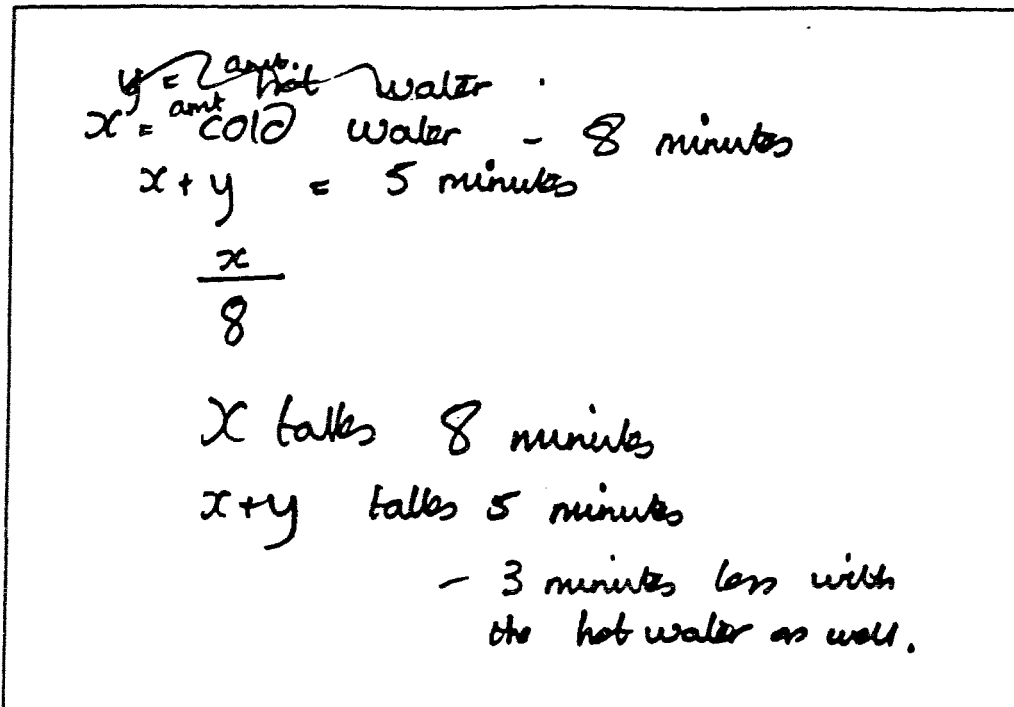 y = amt. hot water .
x = amt cold water - 8 minutes
x + y = 5 minutes
x
8
x takes 8 minutes
x+y takes 5 minutes
- 3 minutes less with
the hot water as well.